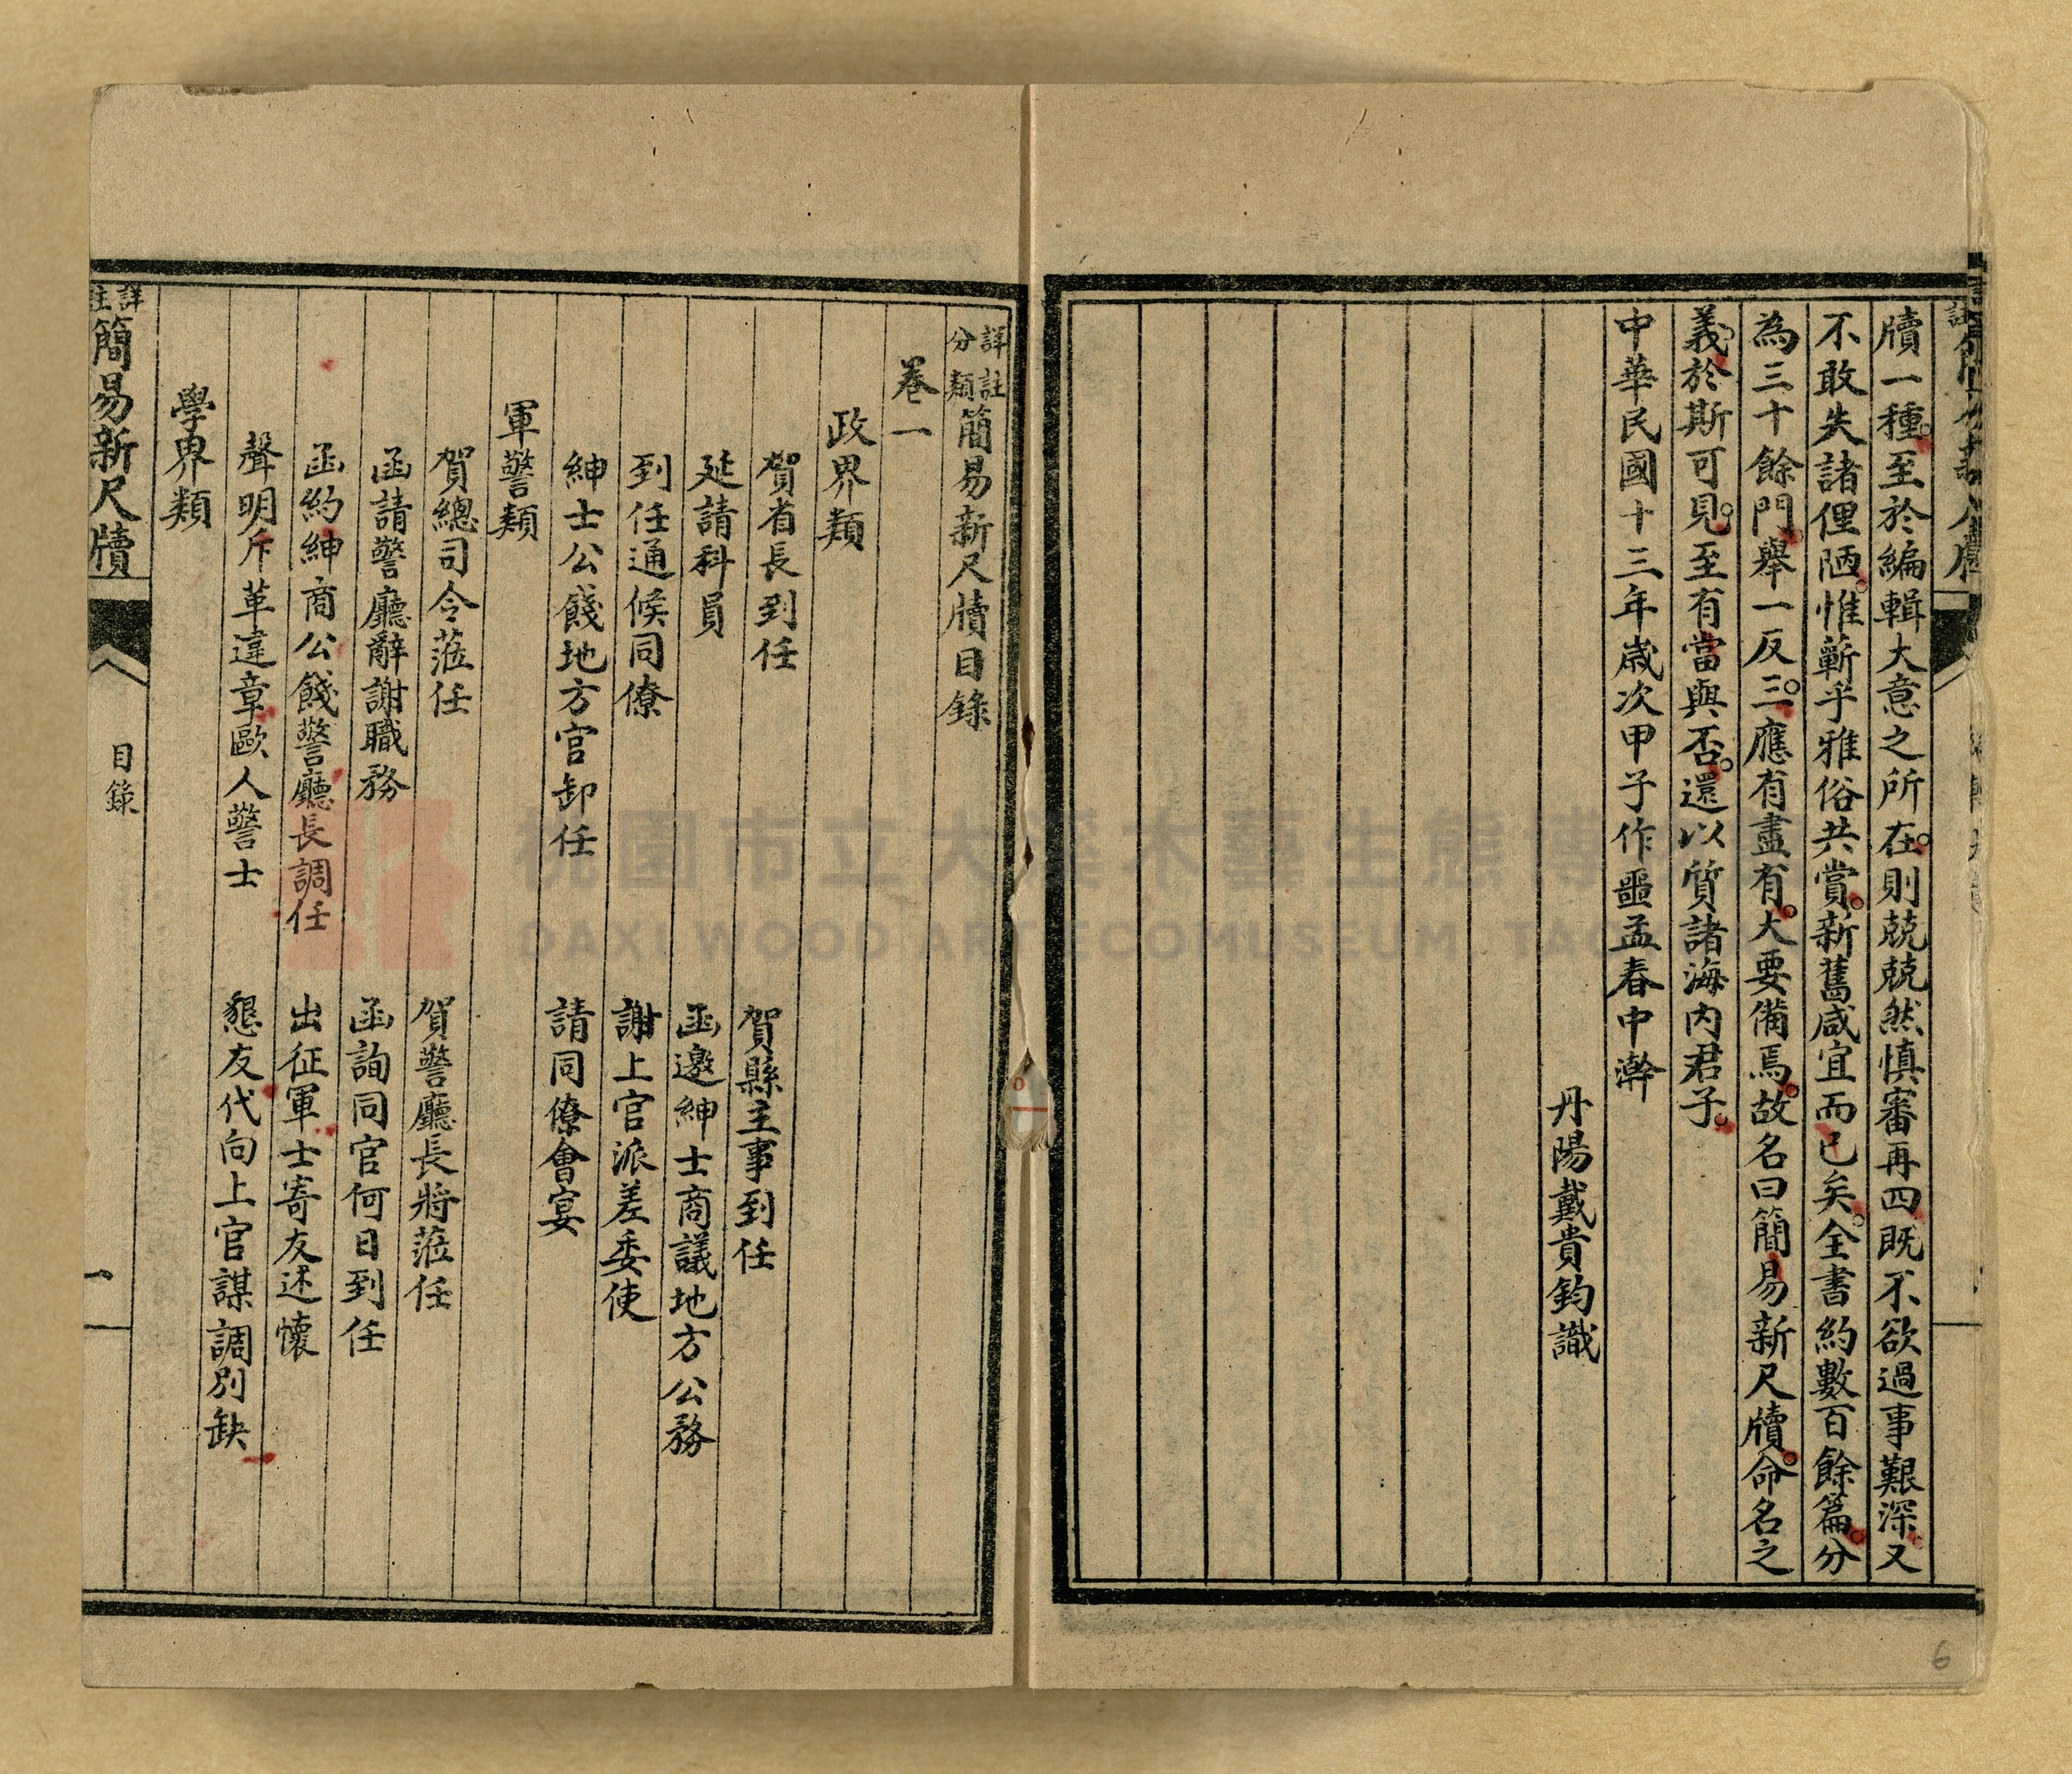 牘一種。至於編輯大意之所在。則兢兢然慎審再四既不欲過事艱深又
不敢失諸俚陋。惟蘄乎雅俗共賞。新舊咸宜而已矣。全書約數百餘篇。分
為三十餘門。舉一反三。應有盡有。大要備焉。故名曰簡易新尺牘。命名之
義。於斯可見。至有當與否。還以質諸海内君子。
中華民國十三年歲次甲子作噩孟春中澣
丹陽戴貴鈞識
詳註分類簡易新尺牘目錄
卷一
政界類
賀省長到任 賀縣主事到任
延請科員 函邀紳士商議地方公務
到任通候同僚 謝上官派差委使
紳士公餞地方官卸任 請同僚會宴
軍警類
賀總司令蒞任 賀警廳長將蒞任
函請警廳辭謝職務 函詢同官何日到任
函約紳商公餞警廳長調任 出征軍士寄友述懷
聲明斥革違章毆人警士 懇友代向上官謀調別缺
學界類
詳註簡易新尺牘 目錄 一
桃園市立大溪木藝生態博
DAXI WOOD ART ECOMUSEUM, TAO
6